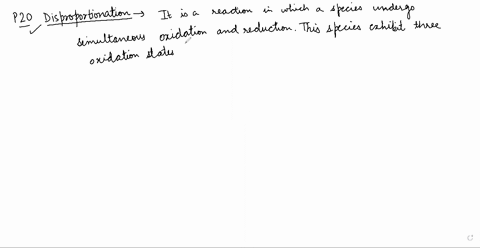 P20 Disproportionation → It is a reaction in which a species undergo
simultaneous oxidation and reduction. This species exhibit three
oxidation states